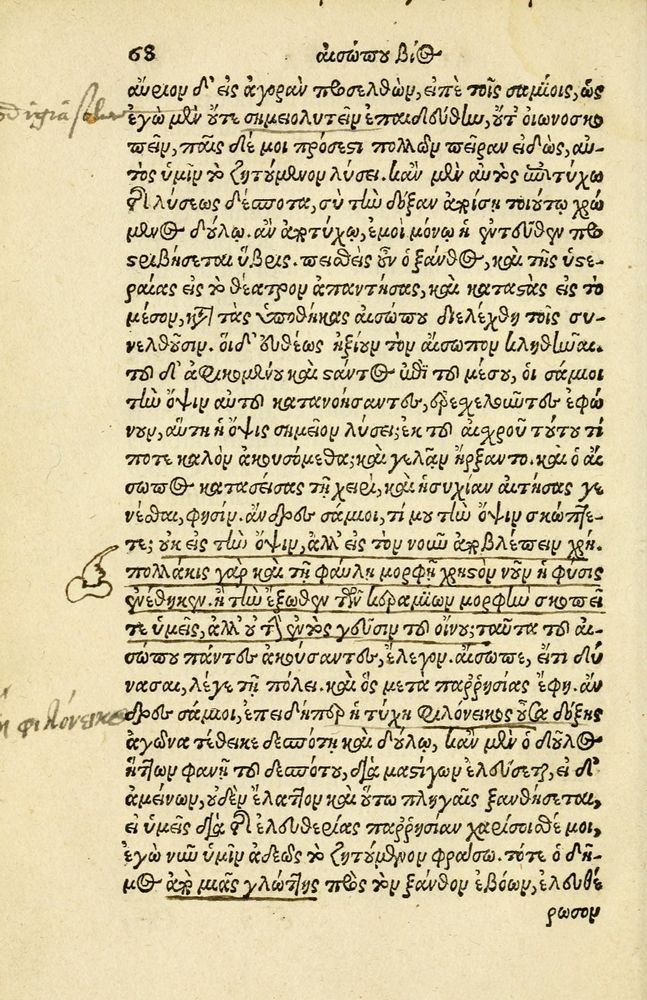 68 αἰσώπου βίος
αὔριον δ' εἰς ἀγορὰν προσελθὼν, εἰπὲ τοῖς σαμίοις, ὡς
ἐγὼ μὲν οὔτε σημειολυτεῖν ἐπαιδεύθην, οὔτ' οἰωνοσκο
πεῖν, παῖς δέ μοι πρόσεστι πολλῶν πεῖραν εἰδὼς, αὐ-
τὸς ὑμῖν τὸ ζητούμενον λύσει. κἂν μὲν αὐτὸς ἐπιτύχω
τῆς λύσεως δέσποτα, σὺ τὴν δόξαν ἀποίσῃ τοιούτῳ χρώ
μενος δούλῳ. ἂν ἀποτύχω, ἐμοὶ μόνῳ ἡ ἐντεῦθεν προ
στριβήσεται ὕβρις. πεισθεὶς οὖν ὁ ξάνθος, καὶ τῆς ὑστε-
ραίας εἰς τὸ θέατρον ἀπαντήσας, καὶ καταστὰς εἰς τὸ
μέσον, κατὰ τὰς ὑποθήκας αἰσώπου διελέχθη τοῖς συ-
νελθοῦσιν. οἱ δ' εὐθέως ἠξίουν τὸν αἴσωπον κληθῆναι.
τοῦ δ' ἀφικομένου καὶ στάντος ἐπὶ τοῦ μέσου, οἱ σάμιοι
τὴν ὄψιν αὐτοῦ κατανοήσαντες, ἐρεσχελοῦντες ἐφώ
νουν, αὕτη ἡ ὄψις σημεῖον λύσει; ἐκ τοῦ αἰσχροῦ τούτου τί
ποτε καλὸν ἀκουσόμεθα; καὶ γελᾶν ἤρξαντο. καὶ ὁ αἴ
σωπος κατασείσας τῇ χειρὶ, καὶ ἡσυχίαν αἰτήσας γε
νέσθαι, φησίν. ἄνδρες σάμιοι, τί μου τὴν ὄψιν σκώπτε-
τε; οὐκ εἰς τὴν ὄψιν, ἀλλ' εἰς τὸν νοῦν ἀποβλέπειν χρή.
πολλάκις γὰρ καὶ τῇ φαύλῃ μορφῇ χρηστὸν νοῦν ἡ φύσις
ἐνέθηκεν. ἢ τὴν ἔξωθεν τῶν κεραμίων μορφὴν σκοπεῖ
τε ὑμεῖς, ἀλλ' οὐ τὴν ἐντὸς γεῦσιν τοῦ οἴνου; ταῦτα τοῦ αἰ-
σώπου πάντες ἀκούσαντες, ἔλεγον. αἴσωπε, εἴ τι δύ
νασαι, λέγε τῇ πόλει. καὶ ὃς μετὰ παῤῥησίας ἔφη. ἄν
δρες σάμιοι, ἐπειδήπερ ἡ τύχη φιλόνεικος οὖσα δόξης
ἀγῶνα τέθεικε δεσπότῃ καὶ δούλῳ, κἂν μὲν ὁ δοῦλος
ἥττων φανῇ τοῦ δεσπότου, διὰ μαστίγων ἐλεύσεται, εἰ δ'
ἀμείνων, οὐδὲν ἔλαττον καὶ οὕτω πληγαῖς ξανθήσεται,
εἰ ὑμεῖς διὰ τῆς ἐλευθερίας παῤῥησίαν χαρίσοισθέ μοι,
ἐγὼ νῦν ὑμῖν ἀδεῶς τὸ ζητούμενον φράσω. τότε ὁ δῆ-
μος ἀπὸ μιᾶς γλώττης πρὸς τὸν ξάνθον ἐβόων, ἐλευθέ
ρωσον
ἡ φιλόνεικος